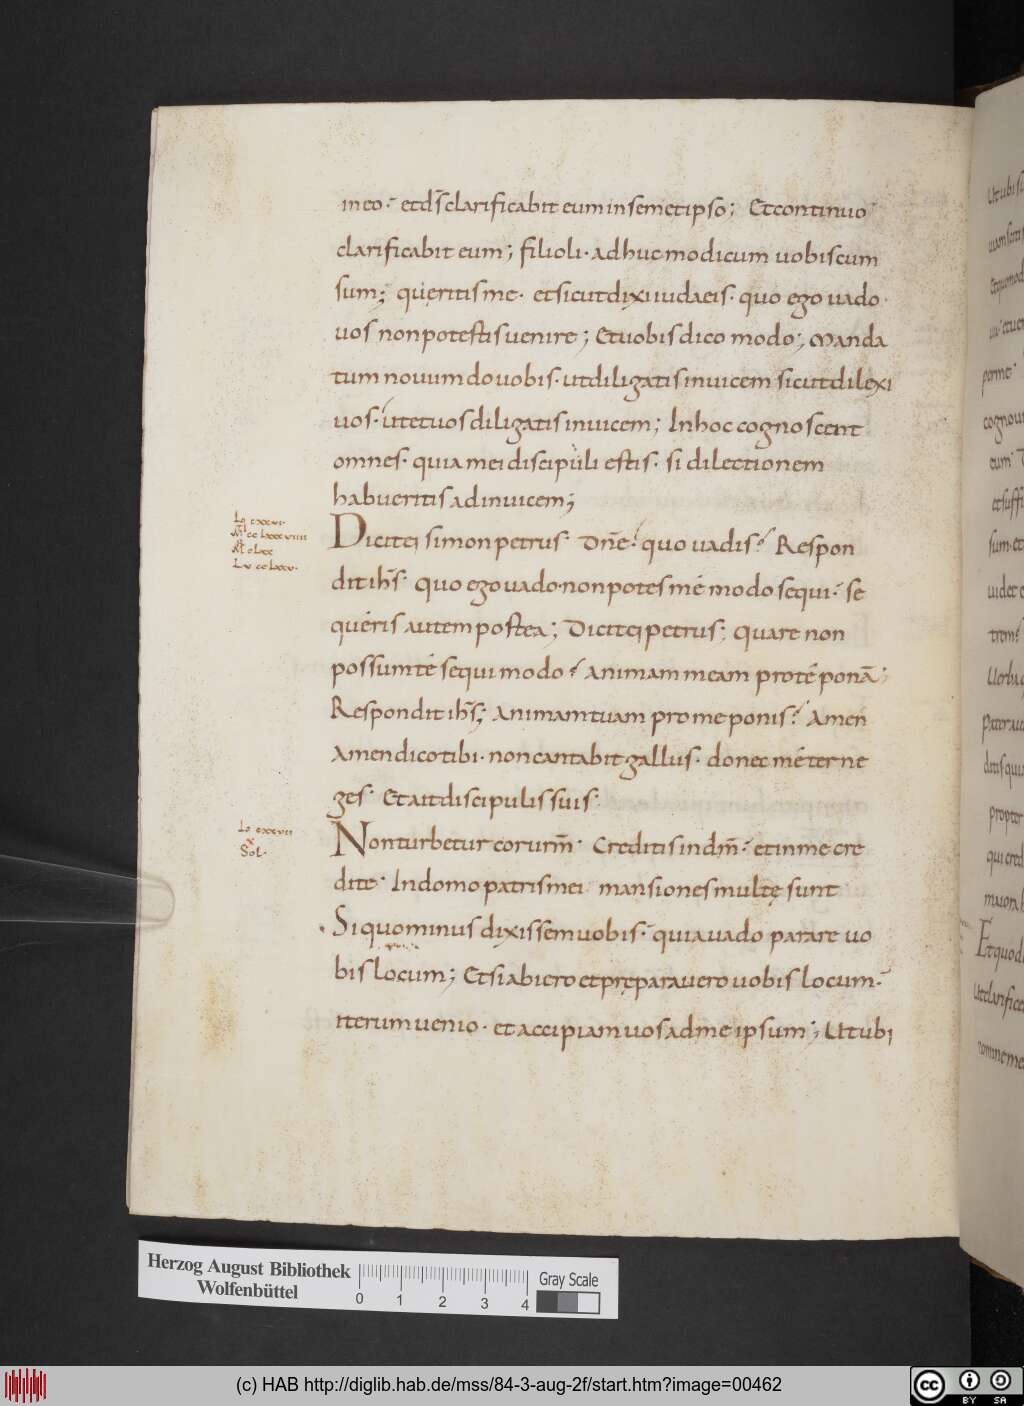 in eo· et d̄s clarificabit eum in semetipso; Et continuo
clarificabit eum; filioli· adhuc modicum uobiscum
sum; quęritis me· et sicut dixi iudaeis· quo ego uado·
uos non potestis uenire; Et uobis dico modo; Manda
tum nouum do uobis· ut diligatis inuicem sicut dilexi
uos· ut et uos diligatis inuicem; In hoc cognoscent
omnes· quia mei discipuli estis· si dilectionem
habueritis ad inuicem;
Dicit ei simon petrus· Dn̄e· quo uadis? Respon
dit ih̄s· quo ego uado· non potes mé modo sequi· se
quéris autem postea; Dicit ei petrus; Quare non
possum té sequi modo? Animam meam pro té ponā;
Respondit ih̄s; Animam tuam pro me ponis? Amen
Amen dico tibi· non cantabit gallus· donec mé ter ne
ges· Et ait discipulis suis·
Non turbetur cor ur̄m· Creditis in dm̄· et in me cre
dite· In domo patris mei mansiones multę sunt
Si quo minus dixissem uobis· quia uado parare uo
bis locum; Et si abiero et pręparauero uobis locum·
iterum uenio· et accipiam uos ad me ipsum; Ut ubi
Io cxxvi·
Mr̄ cclxxxviiii
Lu cclxxv·
Io cxxvii
x
Sol·
Herzog August Bibliothek
Wolfenbüttel
0 1 2 3 4
Gray Scale
(c) HAB http://diglib.hab.de/mss/84-3-aug-2f/start.htm?image=00462
cc
BY SA